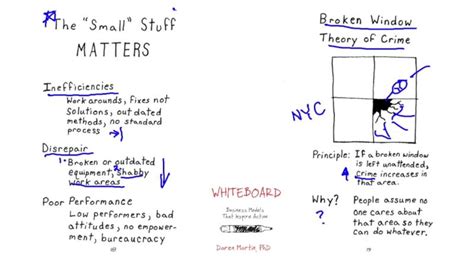 The "Small" Stuff
MATTERS
Inefficiencies
Work arounds, fixes not
Solutions, out dated
methods, no standard
process
Disrepair
1. Broken or outdated
equipment, 2. shabby
work areas
Poor Performance
Low performers, bad
attitudes, no empower-
ment, bureaucracy
WHITEBOARD
Business Models
That Inspire Action
Daren Martin, PhD
Broken Window
Theory of Crime
NYC
Principle: If a broken window
is left unattended,
crime increases in
that area.
Why? People assume no
? one cares about
that area so they
can do whatever.